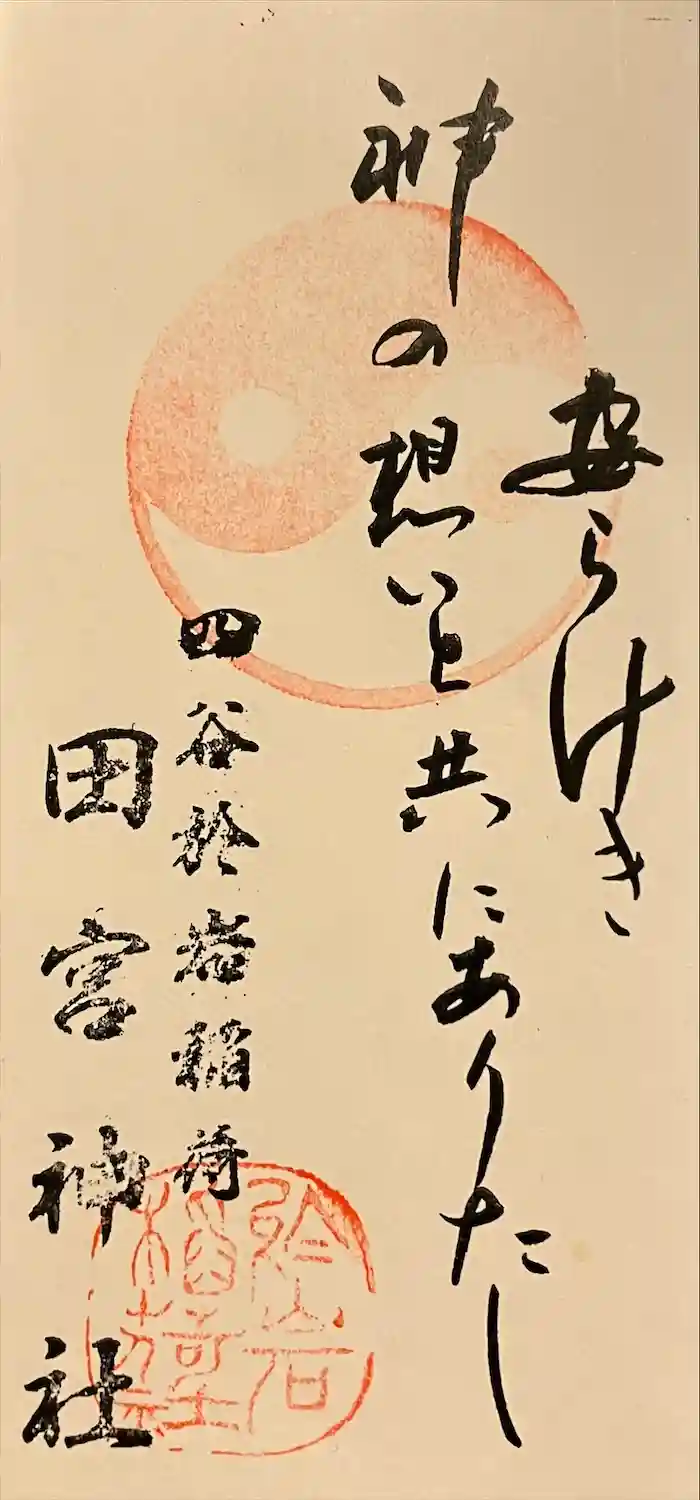 安らけき
神の想いと共にありたし
四谷於岩稲荷
田宮神社
於岩
稲荷